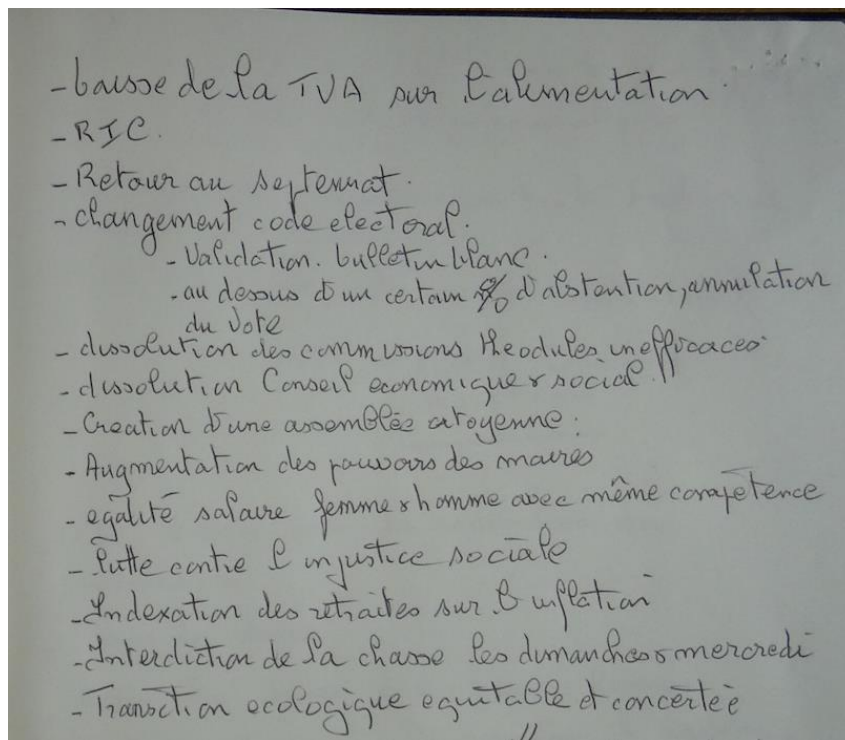 - baisse de la TVA sur l'alimentation.
- RIC.
- Retour au septennat.
- changement code electoral.
- Validation. bulletin blanc.
- au dessus d'un certain % d'abstention, annulation
du vote
- dissolution des commissions theodules, inefficaces.
- dissolution Conseil economique & social.
- Creation d'une assemblée citoyenne.
- Augmentation des pouvoirs des maires
- egalité salaire femme & homme avec même compétence
- lutte contre l'injustice sociale
- Indexation des retraites sur l'inflation
- Interdiction de la chasse les dimanches & mercredi
- Transition ecologique equitable et concertée